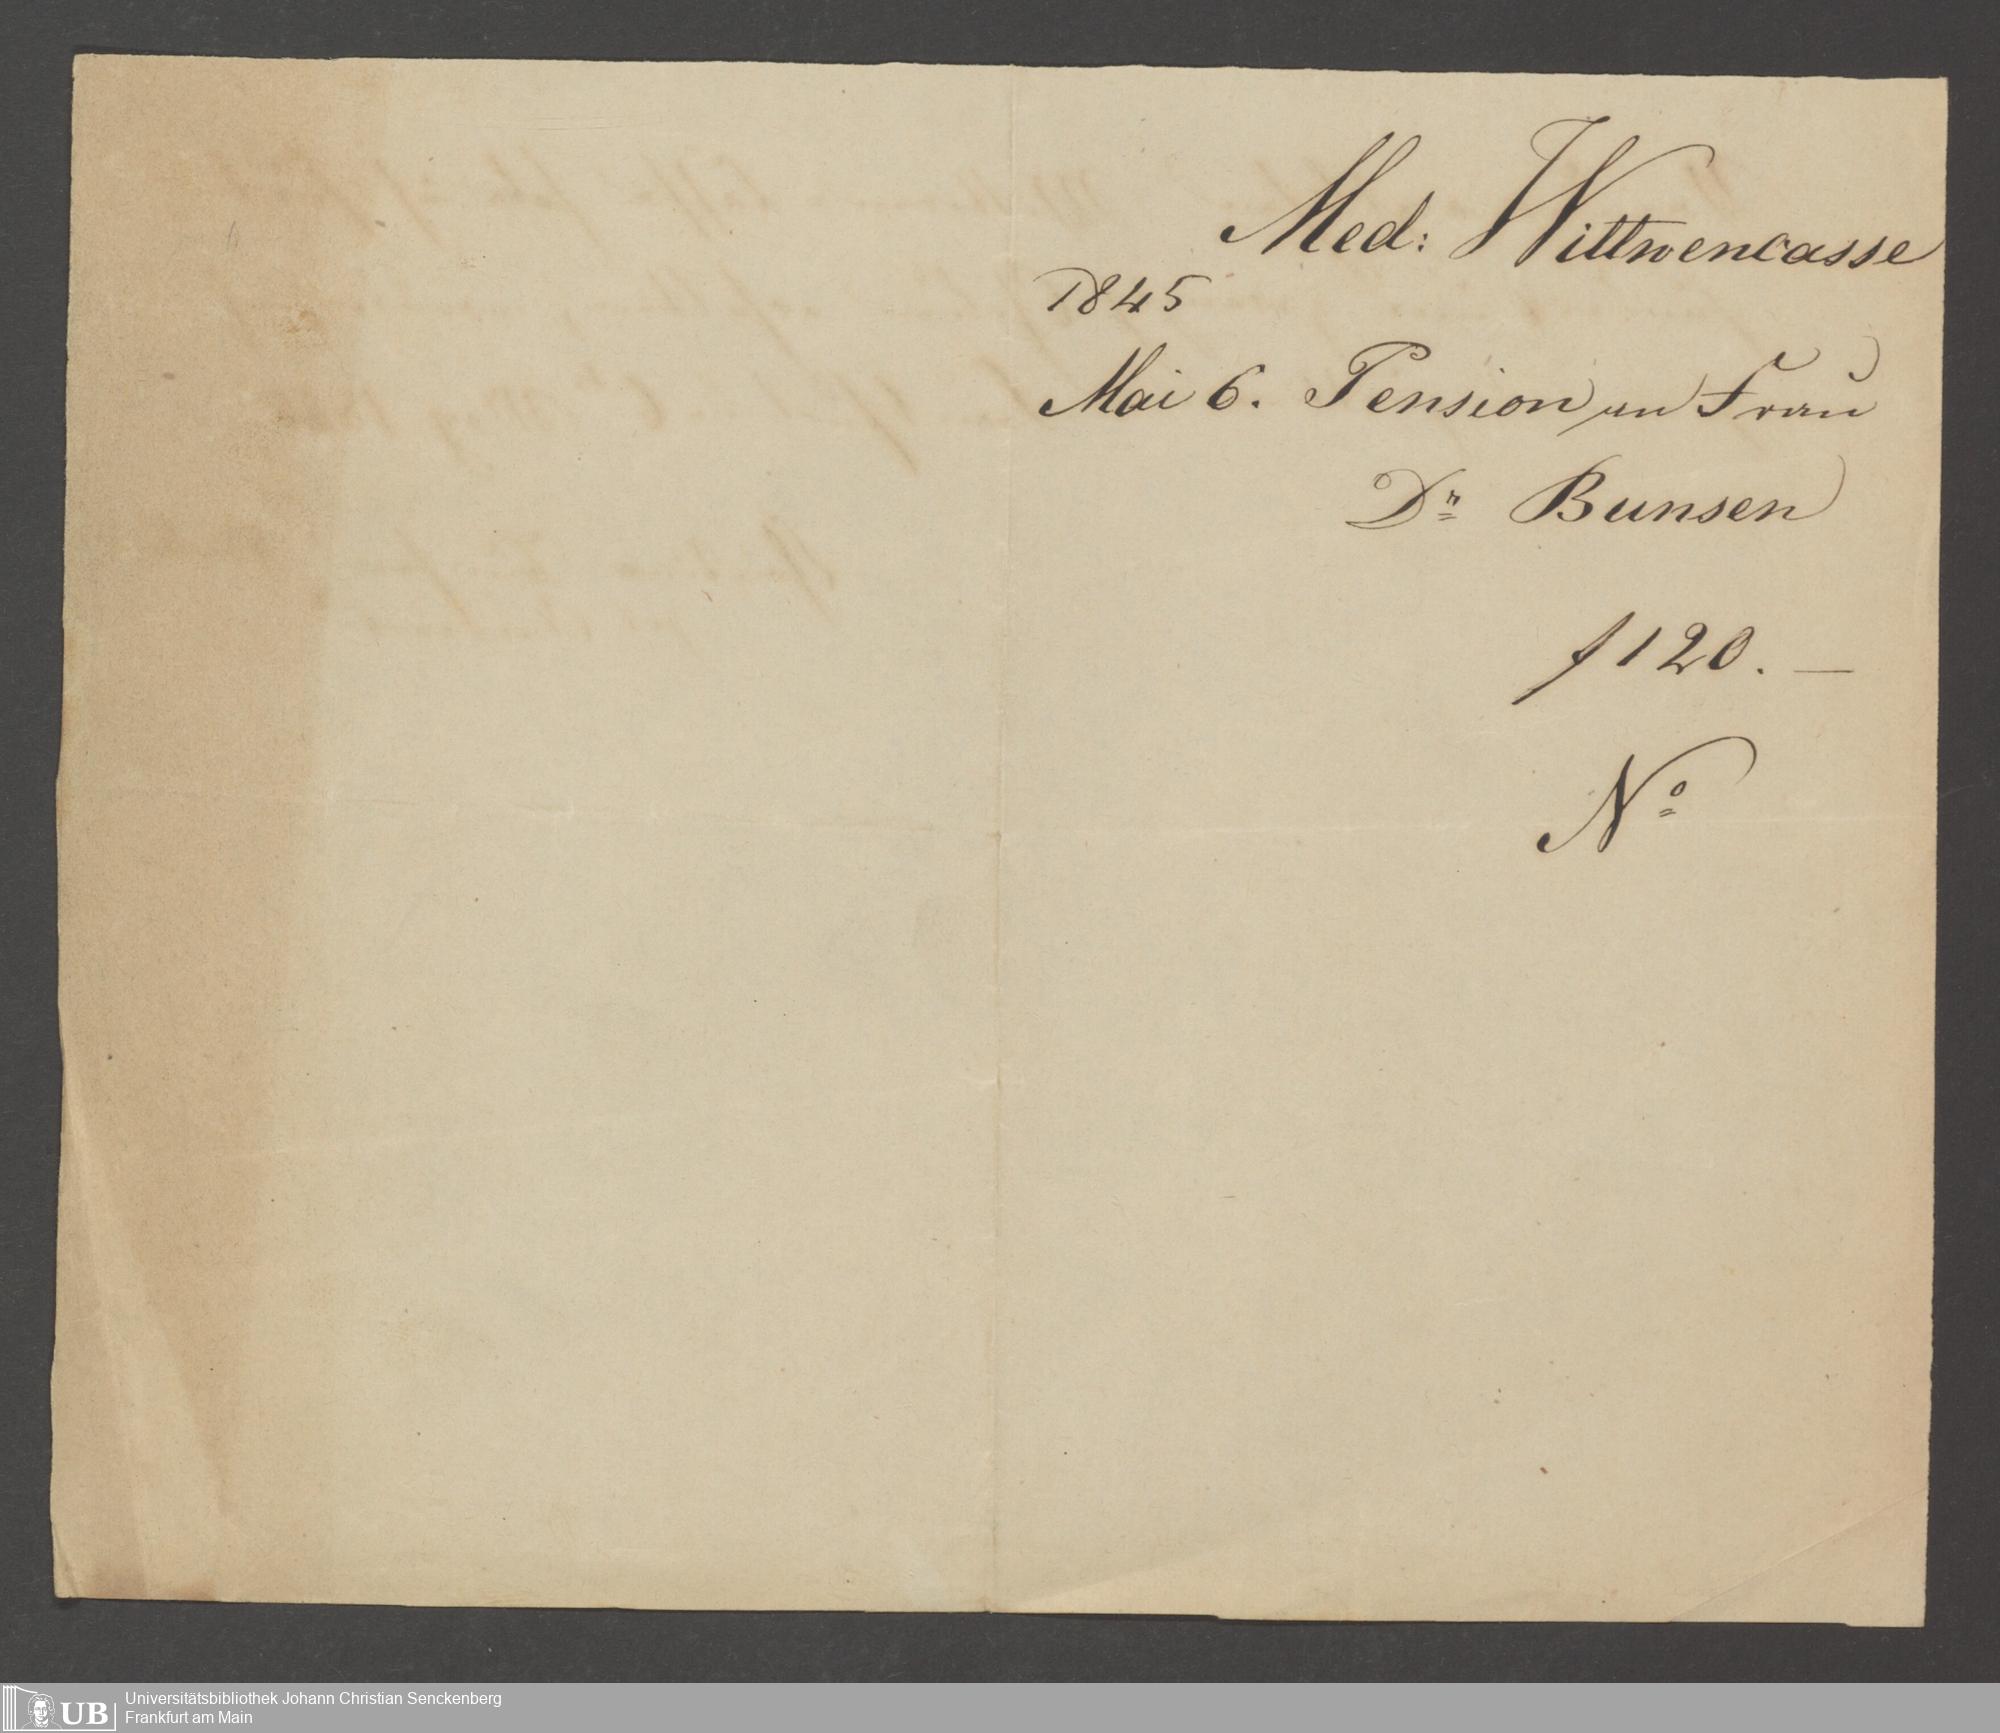 Med: Wittwencasse
1845
Mai 6. Pension an Frau
Dr Bunsen
f 120. —
No
UB
Universitätsbibliothek Johann Christian Senckenberg
Frankfurt am Main